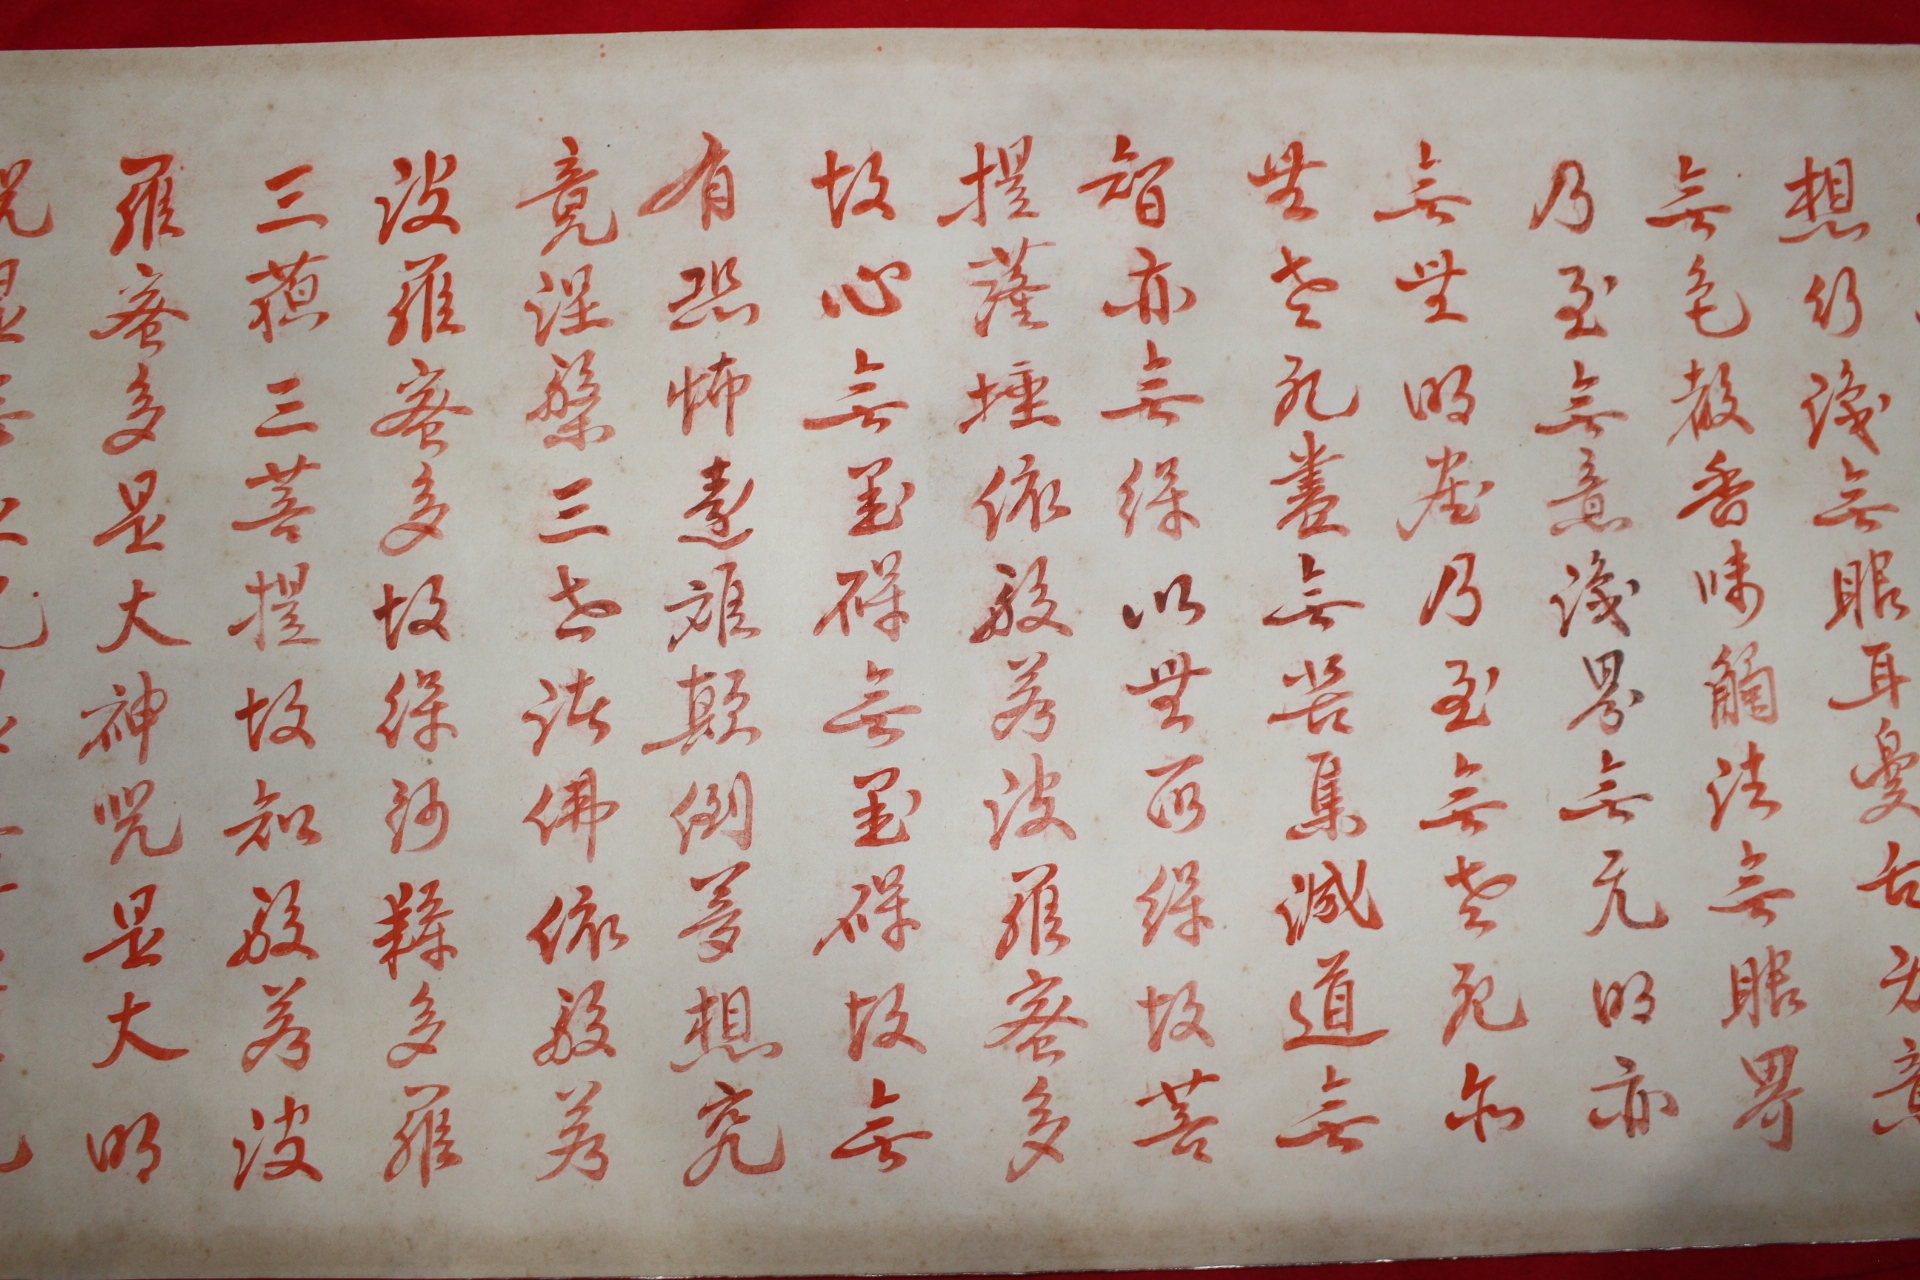 想行識無眼耳鼻舌身意
無色聲香味觸法無眼界
乃至無意識界無无明亦
無無明盡乃至無老死亦
無老死盡無苦集滅道無
智亦無得以無所得故菩
提薩埵依般若波羅蜜多
故心無罣礙無罣礙故無
有恐怖遠離顛倒夢想究
竟涅槃三世諸佛依般若
波羅蜜多故得阿耨多羅
三藐三菩提故知般若波
羅蜜多是大神咒是大明
咒是無上咒